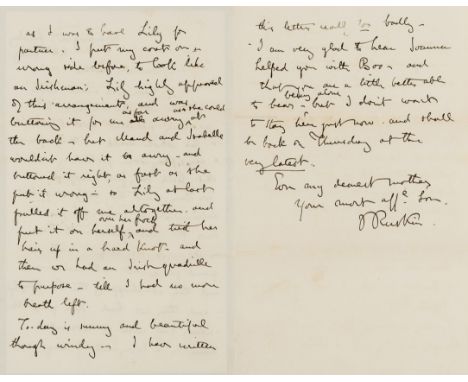 as I was to have Lily for
partner. I put my coat on
wrong side before, to look like
an Irishman; Lily highly approved
of this arrangement, and was
buttoning it for me all awry, as far as she could at
the back - but Maud and Isabelle
wouldn't have it awry - and
buttoned it right, as fast as she
put it wrong - so Lily at last
pulled it off me altogether, and
put it on herself, over her frock and tied her
hair up in a hard knot - and
then we had an Irish quadrille
to purpose - till I had no more
breath left.
To-day is sunny and beautiful
though windy - I have written
this letter really too badly -
I am very glad to hear Joanna
helped you with Boo - and
that you are a little better able
to bear being alone - but I don't want
to stay here just now - and shall
be back on Thursday at the
very latest.
Ever my dearest mother
Your most aff. Son.
J Ruskin.